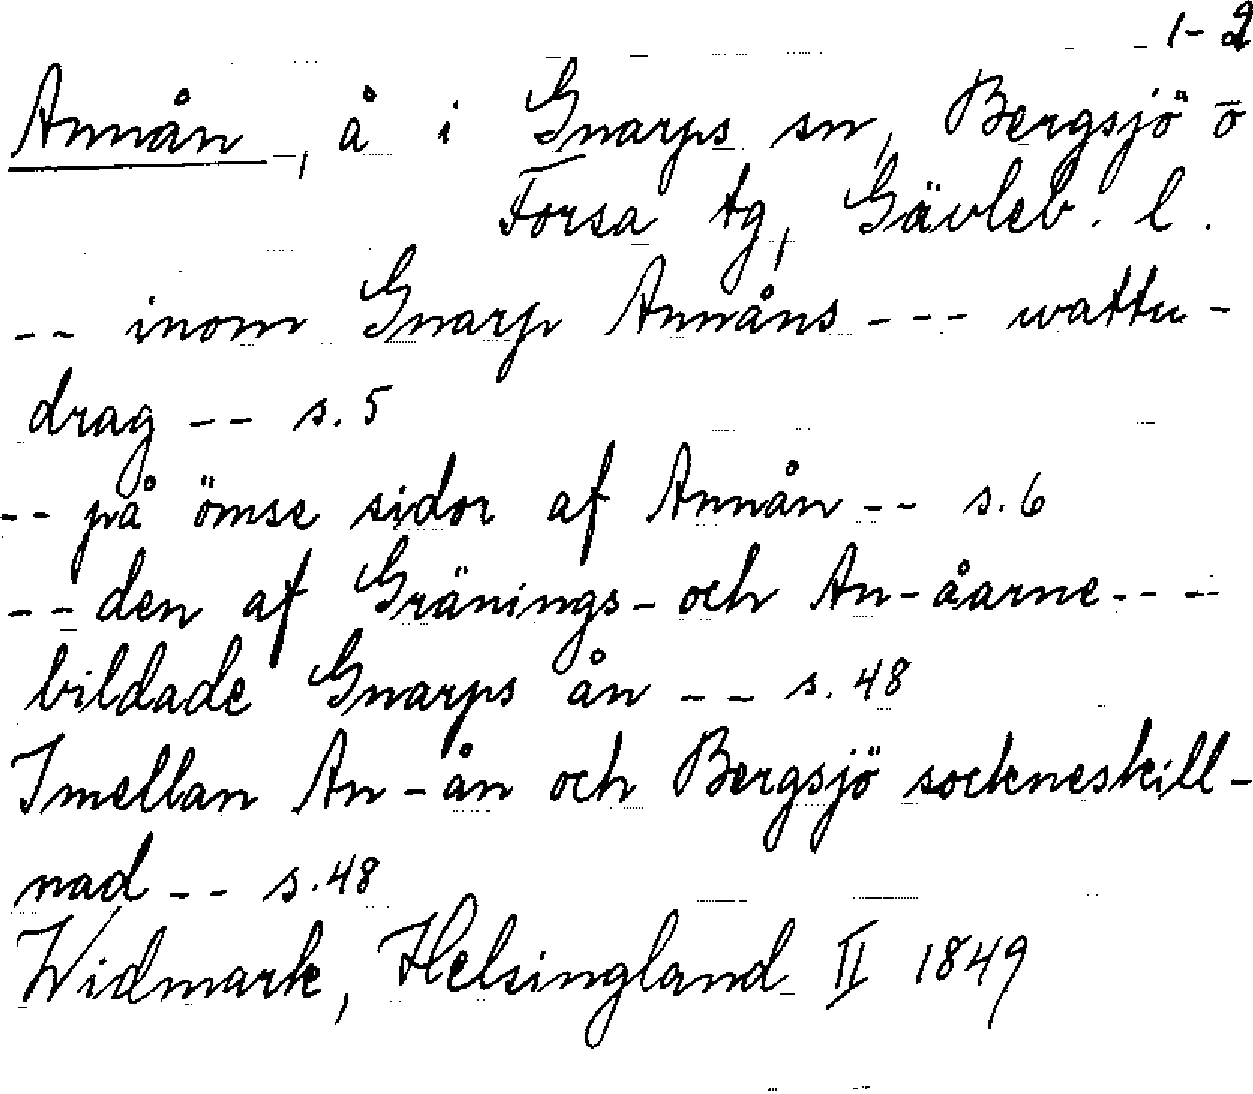 1-2
Annån, å i Gnarps sn, Bergsjö o
Forsa tg, Gävleb. l.
-- inom Gnarp Annåns --- wattu-
drag -- s. 5
-- på ömse sidor af Annån -- s. 6
-- den af Gränings- och An-åarne ---
bildade Gnarps ån -- s. 48
Imellan An-ån och Bergsjö sockneskill-
nad -- s. 48
Widmark, Helsingland II 1849